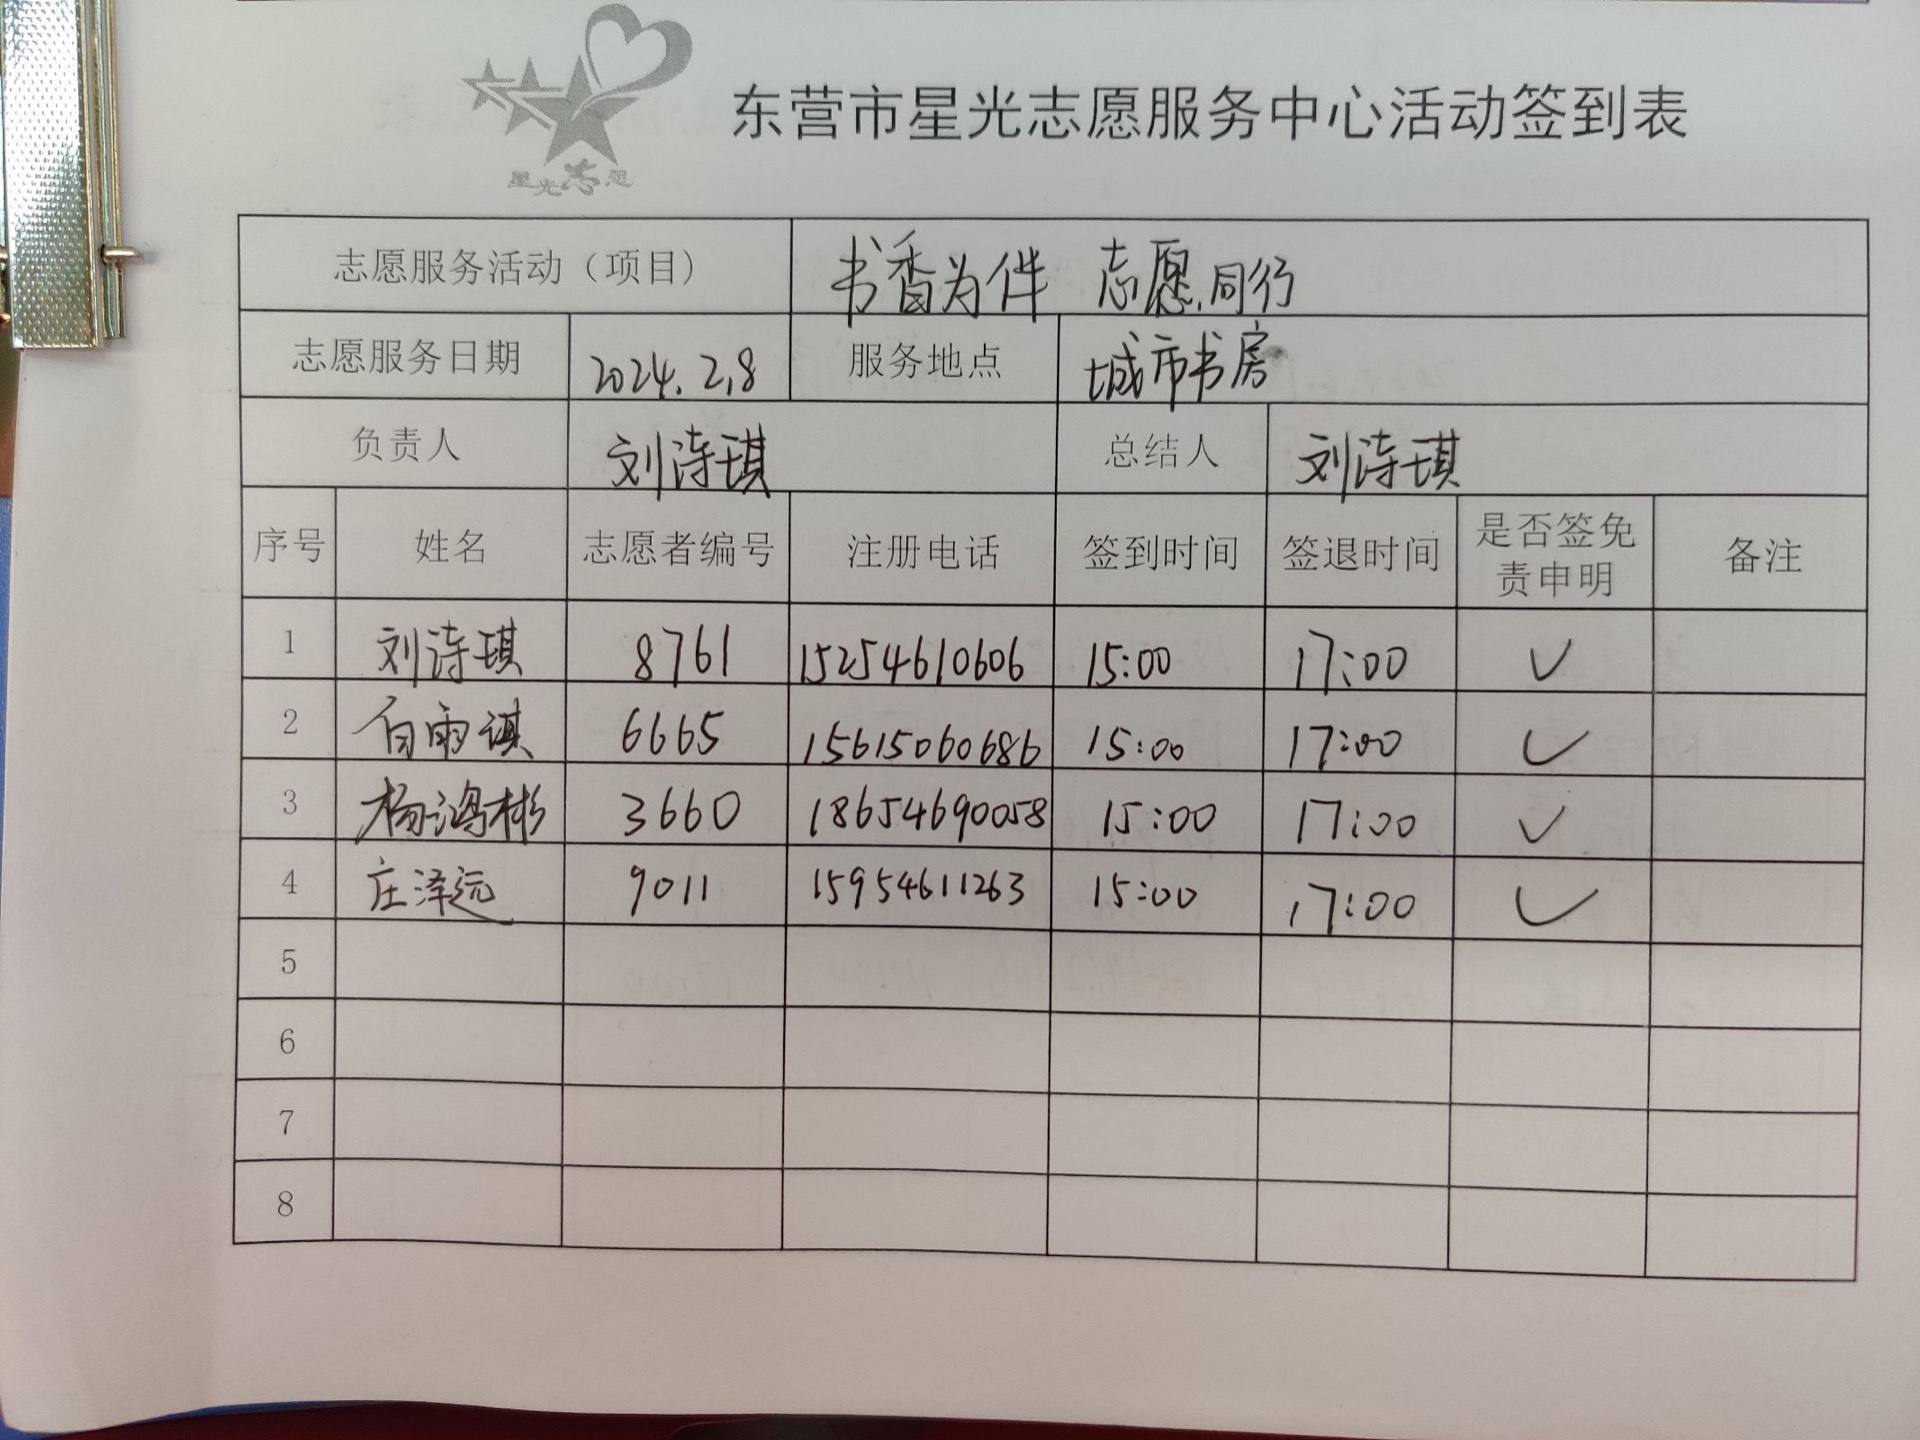 星光志愿
东营市星光志愿服务中心活动签到表
志愿服务活动（项目） 书香为伴 志愿同行
志愿服务日期 2024.2.8 服务地点 城市书房
负责人 刘诗琪 总结人 刘诗琪
序号 姓名 志愿者编号 注册电话 签到时间 签退时间 是否签免责申明 备注
1 刘诗琪 8761 15254610606 15:00 17:00 ✓
2 白雨淇 6665 15615060686 15:00 17:00 ✓
3 杨鸿彬 3660 18654690058 15:00 17:00 ✓
4 庄泽远 9011 15954611263 15:00 17:00 ✓
5
6
7
8